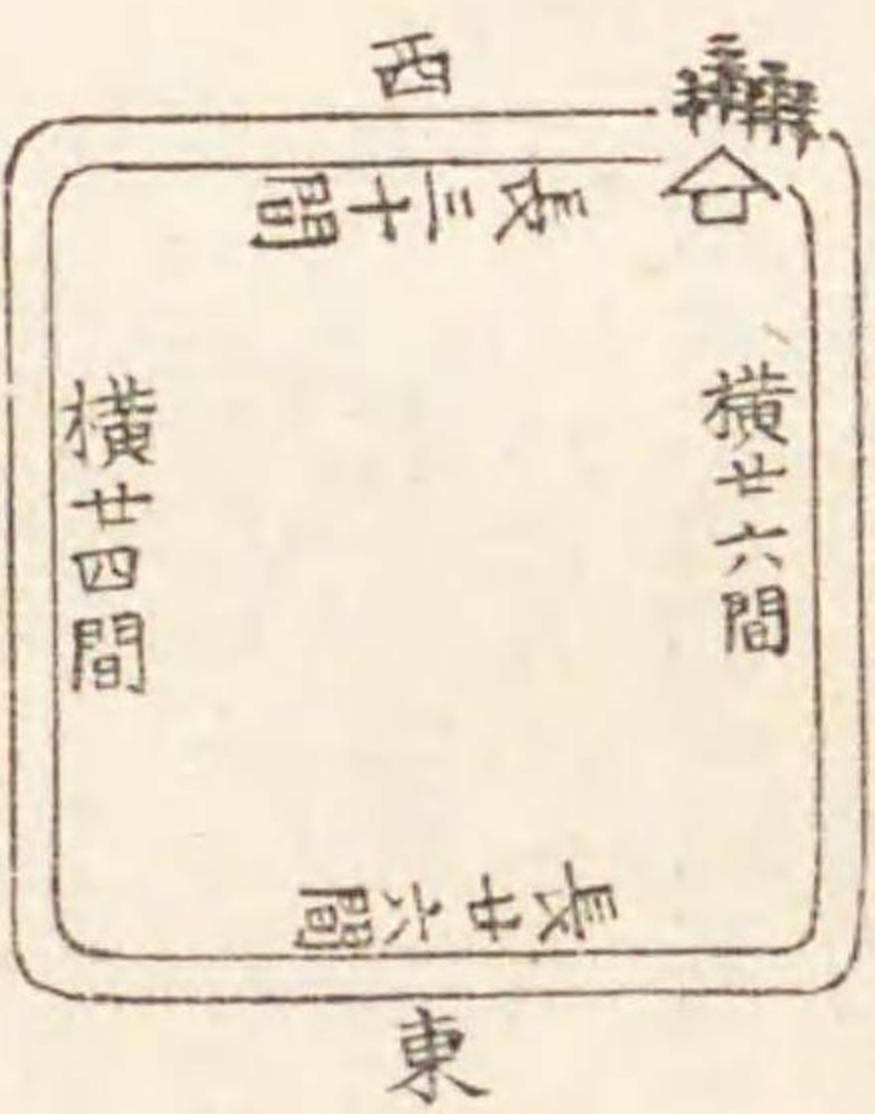 西
長三十間
横廿六間
横廿四間
長廿六間
東